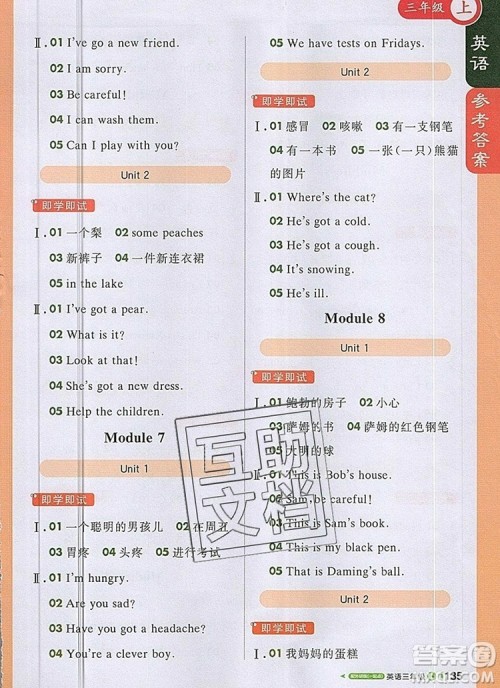 三年级 上
英语
参考答案
Ⅱ. 01 I've got a new friend.
02 I am sorry.
03 Be careful!
04 I can wash them.
05 Can I play with you?
Unit 2
即学即试
Ⅰ. 01 一个梨 02 some peaches
03 新裤子 04 一件新连衣裙
05 in the lake
Ⅱ. 01 I've got a pear.
02 What is it?
03 Look at that!
04 She's got a new dress.
05 Help the children.
Module 7
Unit 1
即学即试
Ⅰ. 01 一个聪明的男孩儿 02 在周五
03 胃疼 04 头疼 05 进行考试
Ⅱ. 01 I'm hungry.
02 Are you sad?
03 Have you got a headache?
04 You're a clever boy.
05 We have tests on Fridays.
Unit 2
即学即试
Ⅰ. 01 感冒 02 咳嗽 03 有一支钢笔
04 有一本书 05 一张(一只)熊猫
的图片
Ⅱ. 01 Where's the cat?
02 He's got a cold.
03 He's got a cough.
04 It's snowing.
05 He's ill.
Module 8
Unit 1
即学即试
Ⅰ. 01 鲍勃的房子 02 小心
03 萨姆的书 04 萨姆的红色钢笔
05 大明的球
Ⅱ. 01 This is Bob's house.
02 Sam, be careful!
03 This is Sam's book.
04 This is my black pen.
05 That is Daming's ball.
Unit 2
即学即试
Ⅰ. 01 我妈妈的蛋糕
英语三年级
135
互助
文档
作业帮